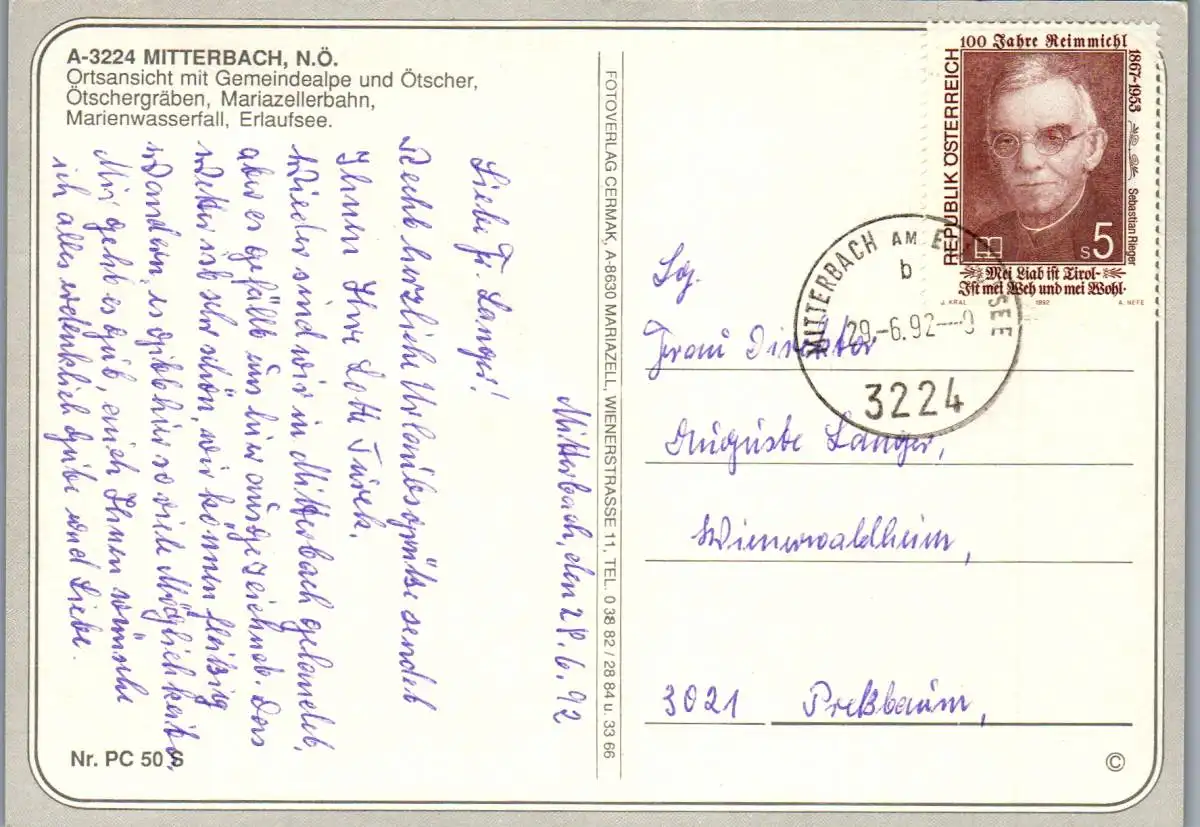 A-3224 MITTERBACH, N.Ö.
Ortsansicht mit Gemeindealpe und Ötscher,
Ötschergräben, Mariazellerbahn,
Marienwasserfall, Erlaufsee.
Mitterbach, den 28. 6. 92
Liebe Fr. Langer!
Recht herzliche Urlaubsgrüße sendet
Ihnen Ihre Lotte Turek.
Wieder sind wir in Mitterbach gelandet,
aber es gefällt uns hier ausgezeichnet. Das
Wetter ist sehr schön, wir können fleißig
wandern, es gibt hier so viele Möglichkeiten.
Mir geht es gut, auch Ihnen wünsche
ich alles erdenklich Gute und Liebe.
Nr. PC 50 S
FOTOVERLAG CERMAK, A-8630 MARIAZELL, WIENERSTRASSE 11, TEL. 0 38 82 / 28 84 u. 33 66
100 Jahre Reimmichl
1867-1953
Sebastian Rieger
REPUBLIK ÖSTERREICH
S 5
Mei Liab ist Tirol-
Ist mei Weh und mei Wohl.
J. KRAL 1992 A. NEFE
MITTERBACH AM E SEE
b
29.-6.92--9
3224
Sg.
Frau Direktor
Auguste Langer,
Wienerwaldheim,
3021 Preßbaum,
©